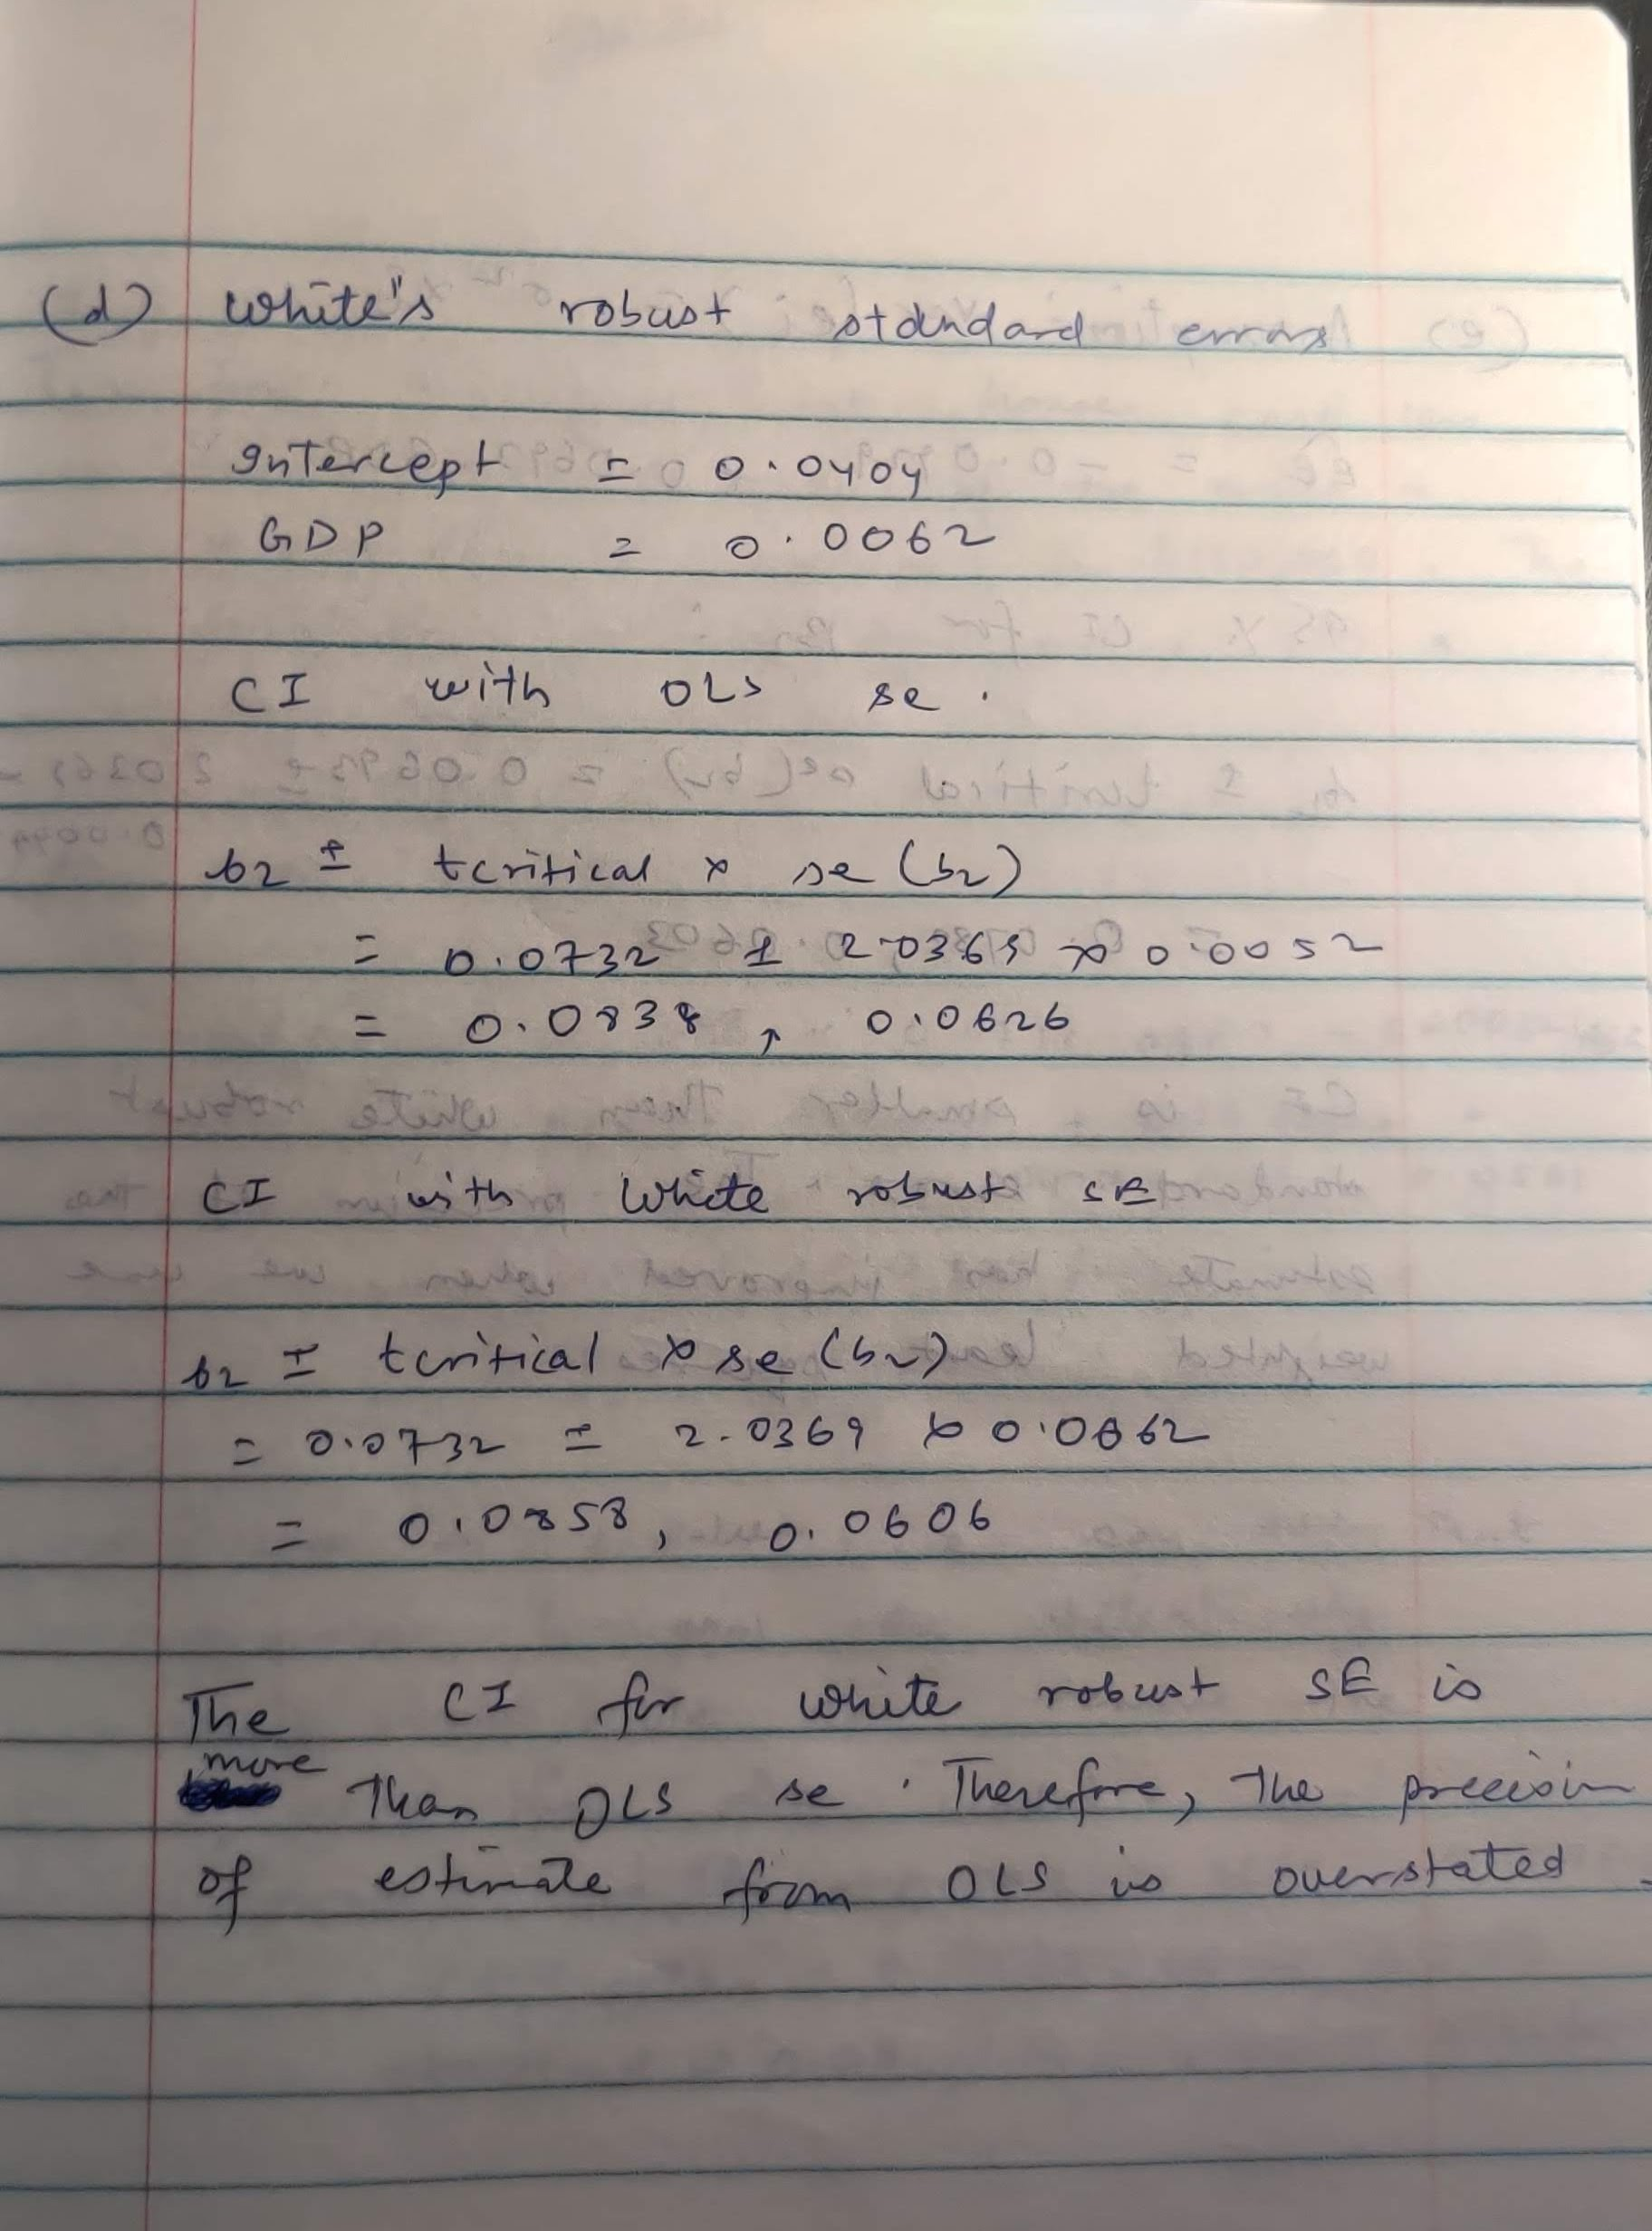 (d) White's robust standard errors
Intercept = 0.0404
GDP = 0.0062
CI with OLS se.
b2 ± tcritical × se (b2)
= 0.0732 ± 2.0369 × 0.0052
= 0.0838, 0.0626
CI with White robust SE
b2 ± tcritical × se (b2)
= 0.0732 ± 2.0369 × 0.0062
= 0.0858, 0.0606
The CI for white robust SE is
more
than OLS se. Therefore, the precision
of estimate from OLS is overstated.